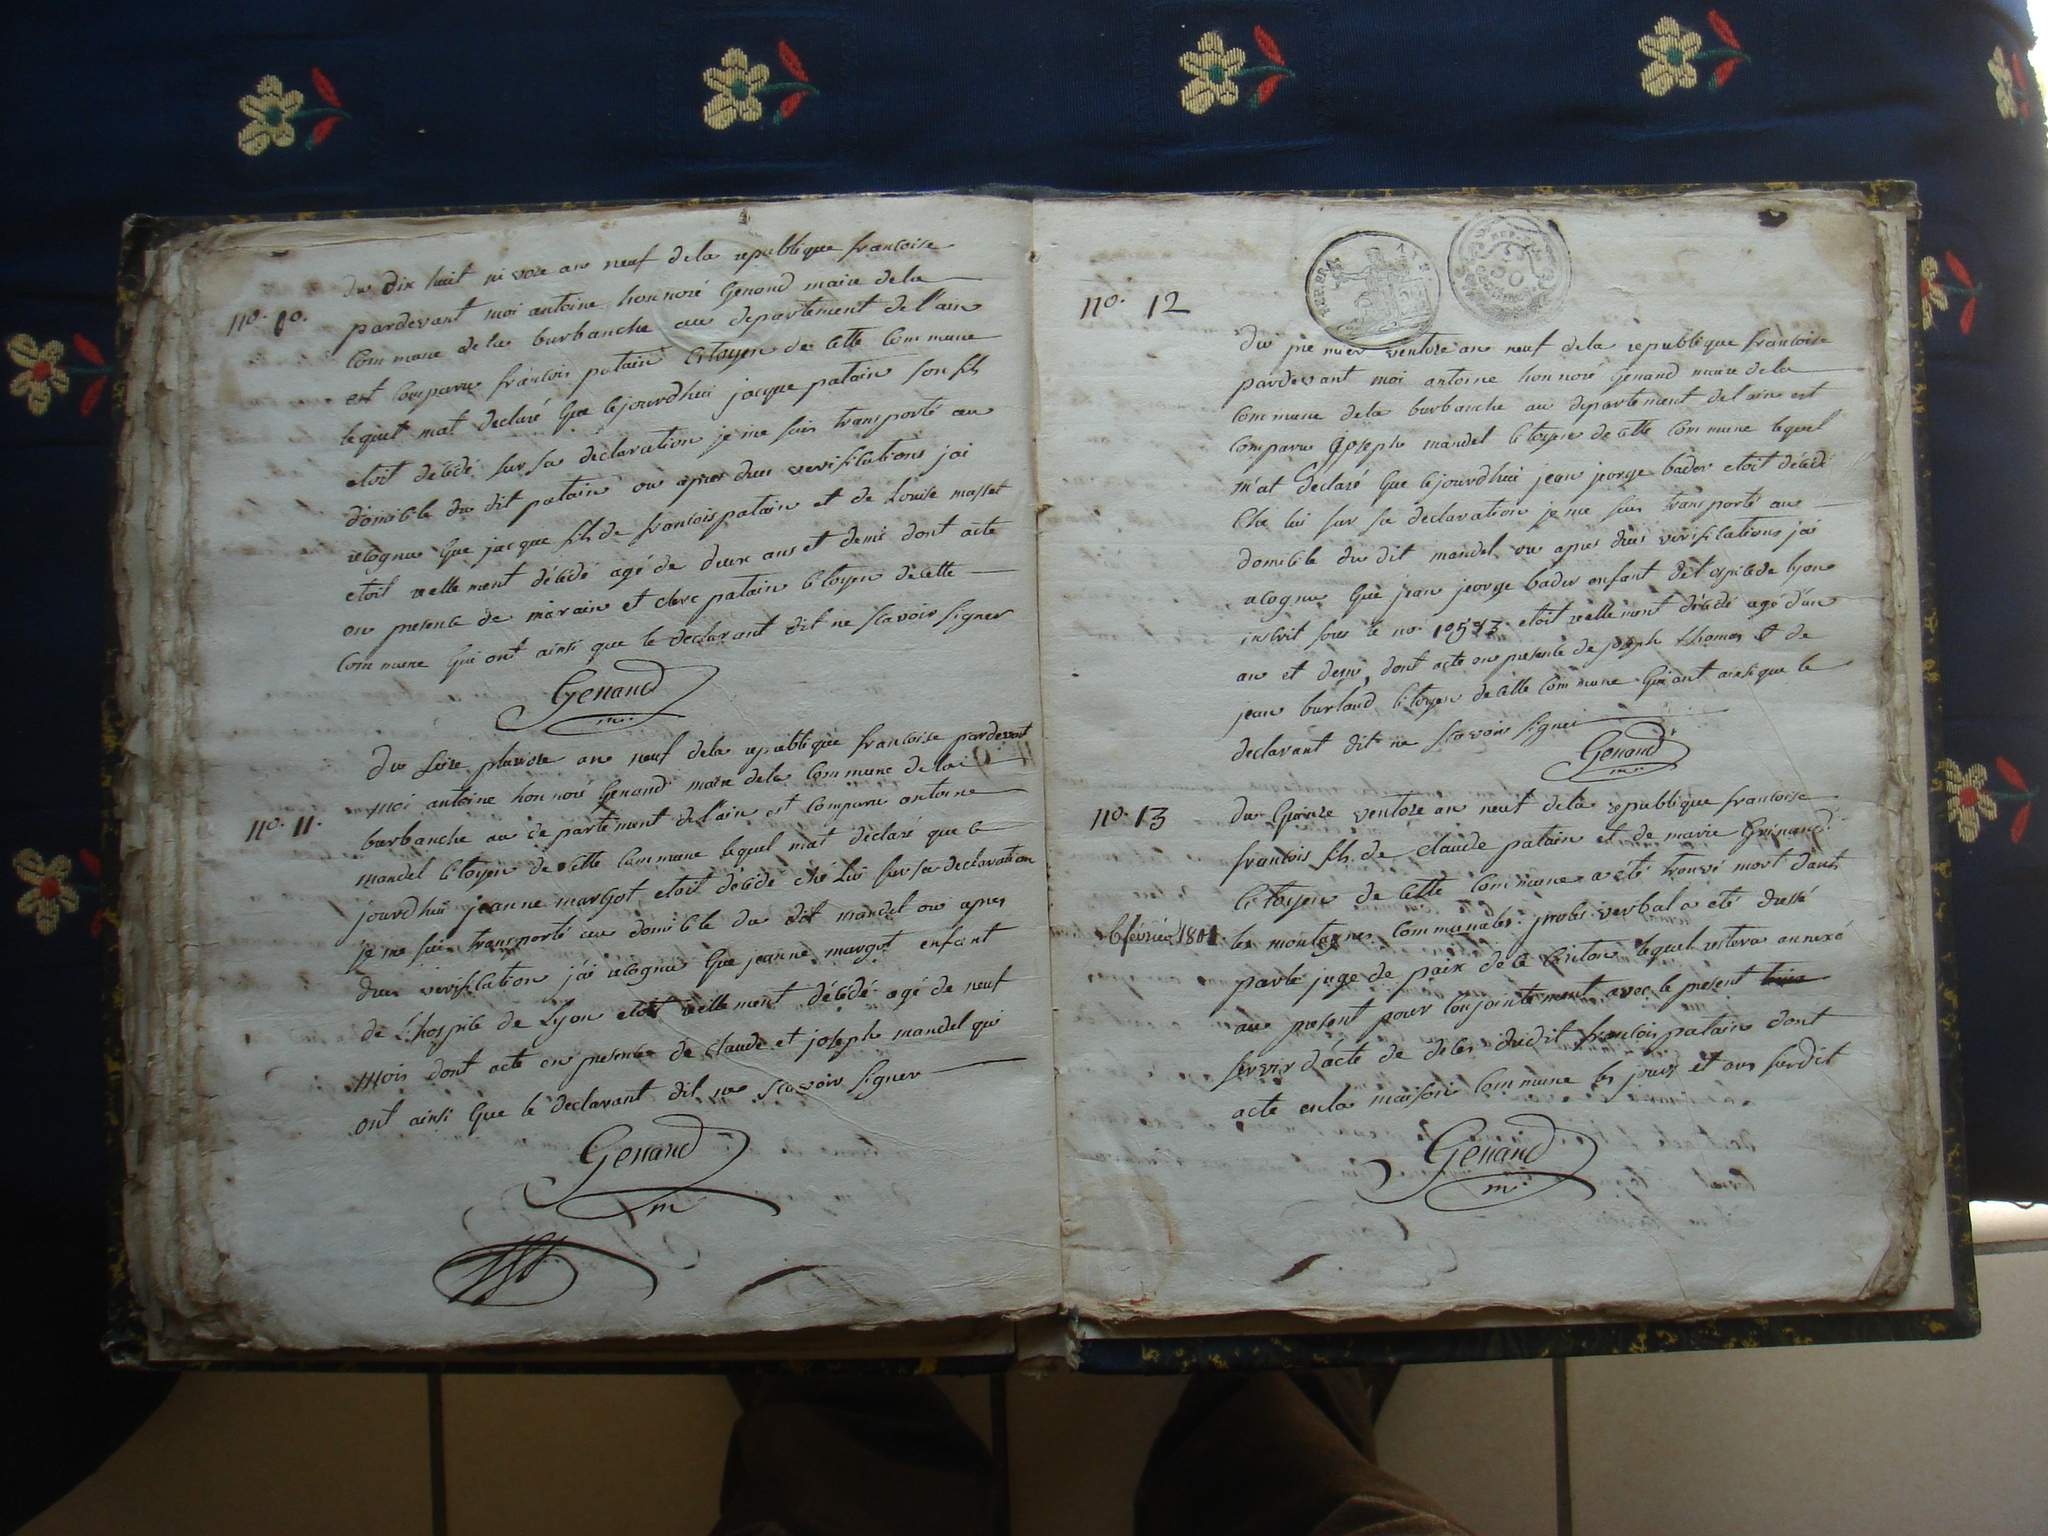 no. 10.
du dix huit nivose an neuf dela republique francoise
pardevant moi antoine honnoré Genand maire dela
Commune dela burbanche au departement de l'ain
est Comparu francois patain Citoyen de Cette Commune
lequel mat declaré que cejourdhui jacque patain son fils
etoit décédé sur sa declaration je me suis transporté au
domicile du dit patain ou apres dues verifications jai
recognu que jacque fils de francois patain et de Louise masset
etoit reellement décédé agé de deux ans et demi dont acte
en presence de et claude patain Citoyen de Cette
Commune qui ont ainsi que le declarant dit ne scavoir signer
Genand
m.
no. 11.
du seize pluviose an neuf dela republique francoise pardevant
moi antoine honnoré Genand maire dela Commune de la
burbanche au departement de l'ain est Comparu antoine
mandel Citoyen de Cette Commune lequel mat declaré que ce
jourdhui jeanne margot etoit décédé ché Lui sur sa declaration
je me suis transporté au domicile du dit mandel ou apres
dues verification jai recognu que jeanne margot enfant
de L'hospice de Lyon etoit reellement décédé agé de neuf
mois dont acte en presence de claude et joseph mandel qui
ont ainsi que le declarant dit ne scavoir signer
Genand
m
no. 12
du premier ventose an neuf dela republique francoise
pardevant moi antoine honnoré Genand maire dela
Commune dela burbanche au departement de l'ain est
Comparu joseph mandel Citoyen de Cette Commune lequel
m'at declaré que cejourdhui jean jeorge bader etoit décédé
Ché lui sur sa declaration je me suis transporté au
domicile du dit mandel ou apres dues verifications jai
recognu que jean jeorge bader enfant de l'ospice de lyon
inscrit sous le no. etoit reellement décédé agé d'un
an et demi, dont acte en presence de joseph thomas et de
jean burland Citoyen de Cette Commune qui ont ainsi que le
declarant dit ne scavoir signer
Genand
m.
no. 13
du quinze ventose an neuf dela republique francoise
francois fils de claude patain et de marie Grinand
Citoyen de Cette Commune a été trouvé mort dans
6 février 1801
les montagnes Communales procès verbal a eté dressé
par le juge de paix de Ce Canton lequel restera annexé
au present pour Conjointement avec le present
servir d'acte de décès dudit francois patain dont
acte en la maison Commune les jours et an susdit
Genand
m.